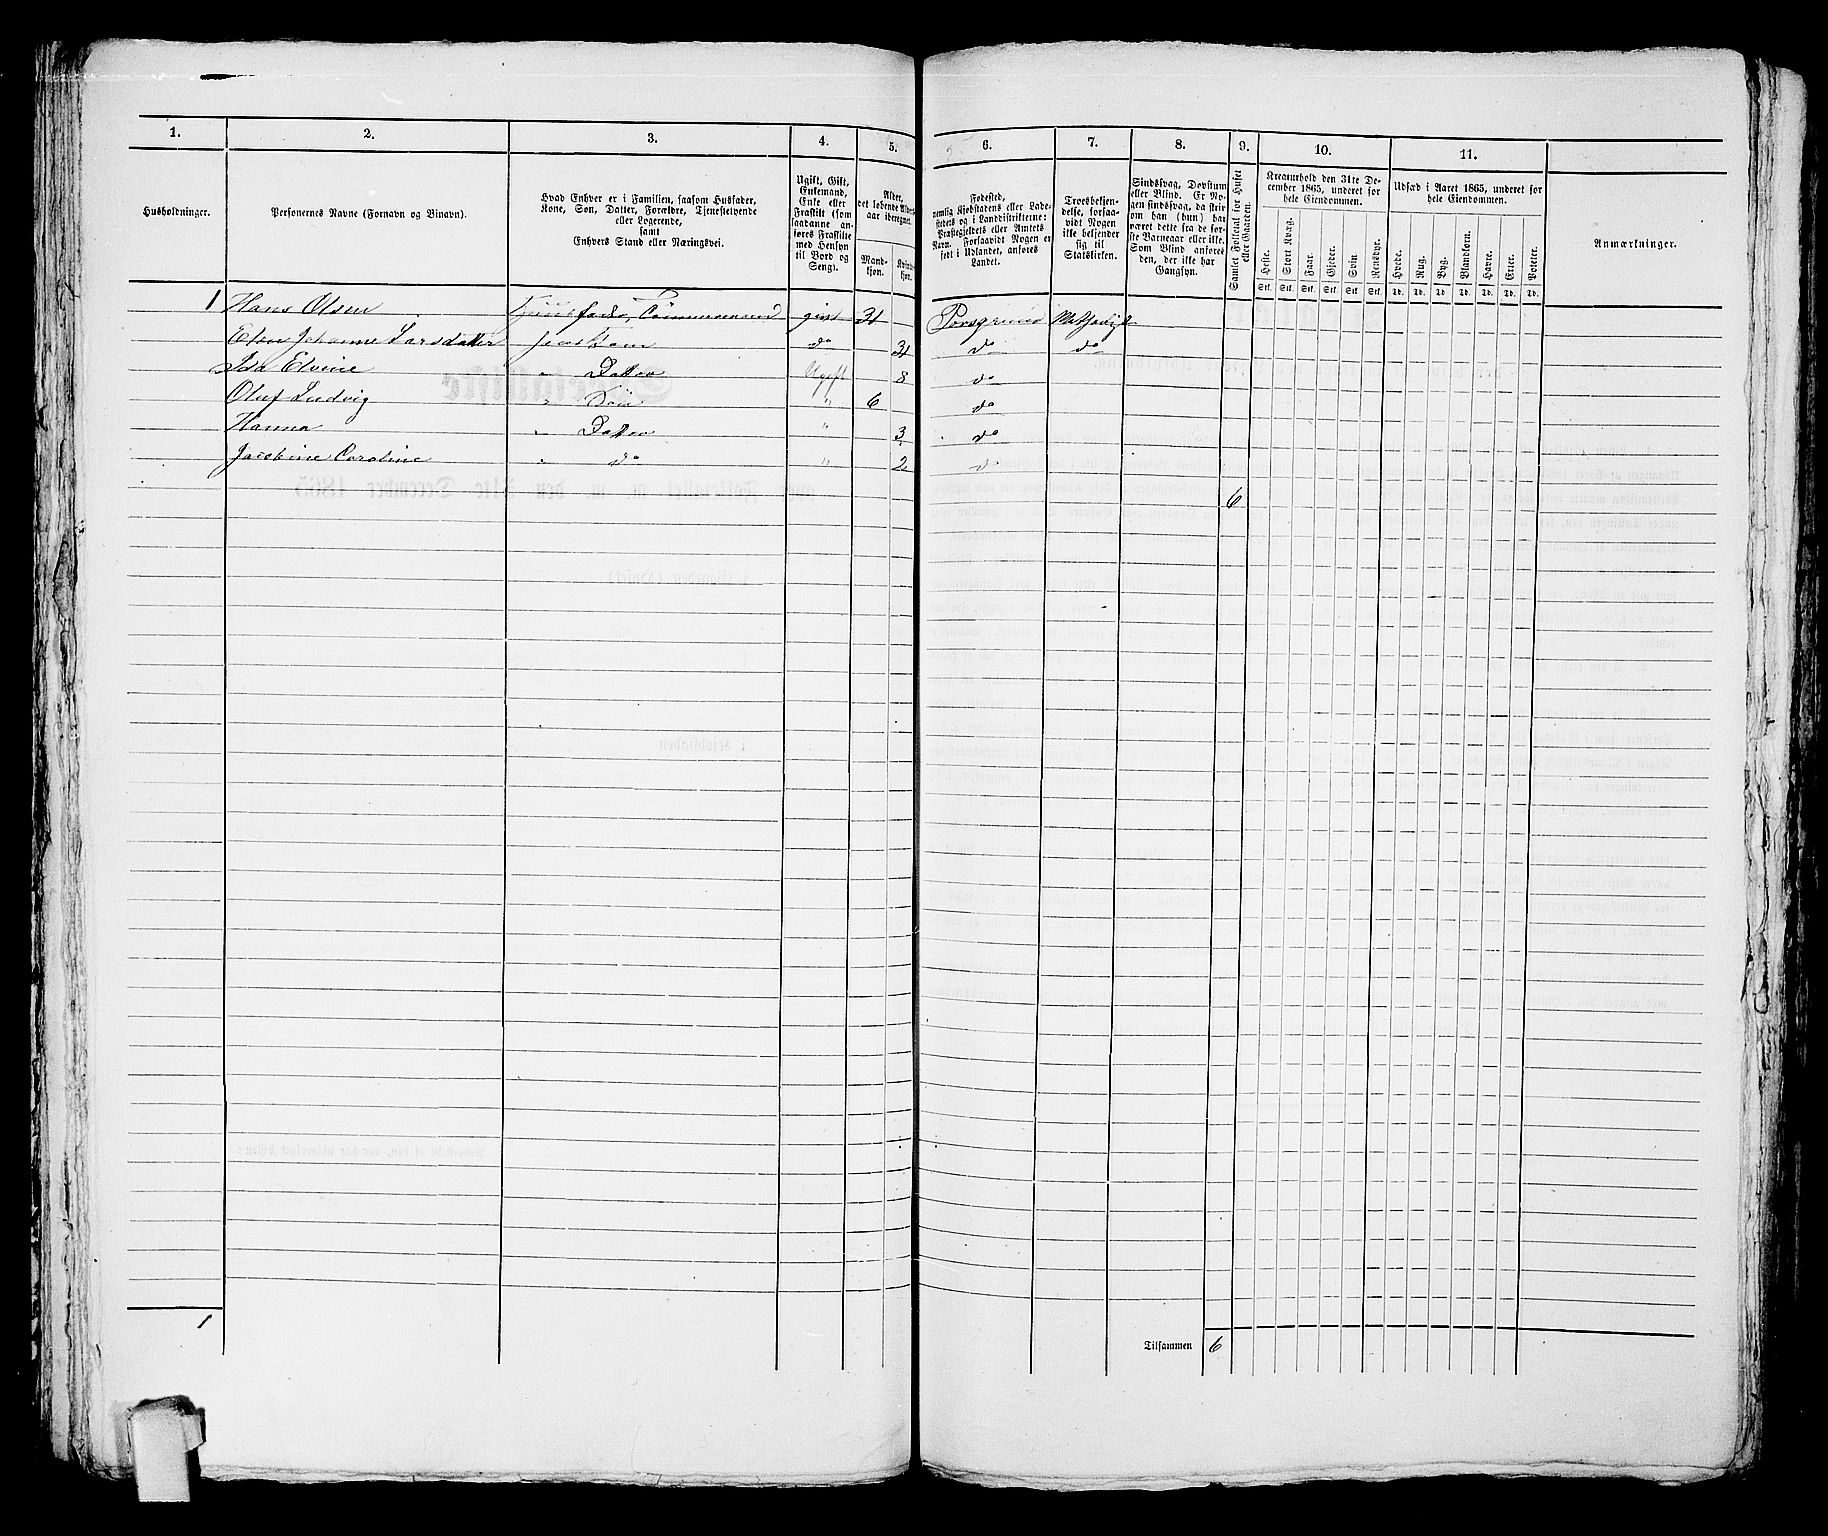 1. 2. 3. 4. 5. 6. 7. 8. 9. 10. 11.
Husholdninger.
Personernes Navne (Fornavn og Binavn).
Hvad Enhver er i Familien, saasom Husfader,
Kone, Søn, Datter, Forældre, Tjenestetyende
eller Logerende,
samt
Enhvers Stand eller Næringsvei.
Ugift, Gift,
Enkemand,
Enke eller
Fraskilt (som
saadanne an-
føres Fraskilte
med Hensyn
til Bord og
Seng).
Alder,
det løbende Alders-
aar iberegnet.
Mand-
kjøn.
Kvinde-
kjøn.
Fødested,
nemlig Kjøbstadens eller Lade-
stedets og i Landdistrikterne:
Præstegjeldets eller Amtets
Navn. Forsaavidt Nogen er
født i Udlandet, anføres
Landet.
Troesbekjen-
delse, forsaa-
vidt Nogen
ikke bekjender
sig til
Statskirken.
Sindssvag, Døvstum
eller Blind. Er No-
gen sindssvag, da skriv
om han (hun) har
været dette fra de før-
ste Barneaar eller ikke.
Som Blind anføres
den, der ikke har
Gangsyn.
Samlet Folketal for Huset
eller Gaarden.
Kreaturhold den 31te De-
cember 1865, underet for
hele Eiendommen.
Heste. Stort Kvæg. Faar. Gjeder. Svin Rensdyr.
Stk. Stk. Stk. Stk. Stk. Stk.
Udsæd i Aaret 1865, underet for
hele Eiendommen.
Hvede. Rug. Byg. Blandkorn. Havre. Erter. Poteter.
Td. Td. Td. Td. Td. Td. Td.
Anmærkninger.
1 Hans Olsen gift 31 Porsgrund
Elen Johanne Larsdatter do do do
Ida Elvine " Datter Ugift 8 do
Oluf Ludvig " Søn " 6 do
Hanna " Datter " 3 do
Jacobine Caroline " do " 2 do
6
1
Tilsammen 6